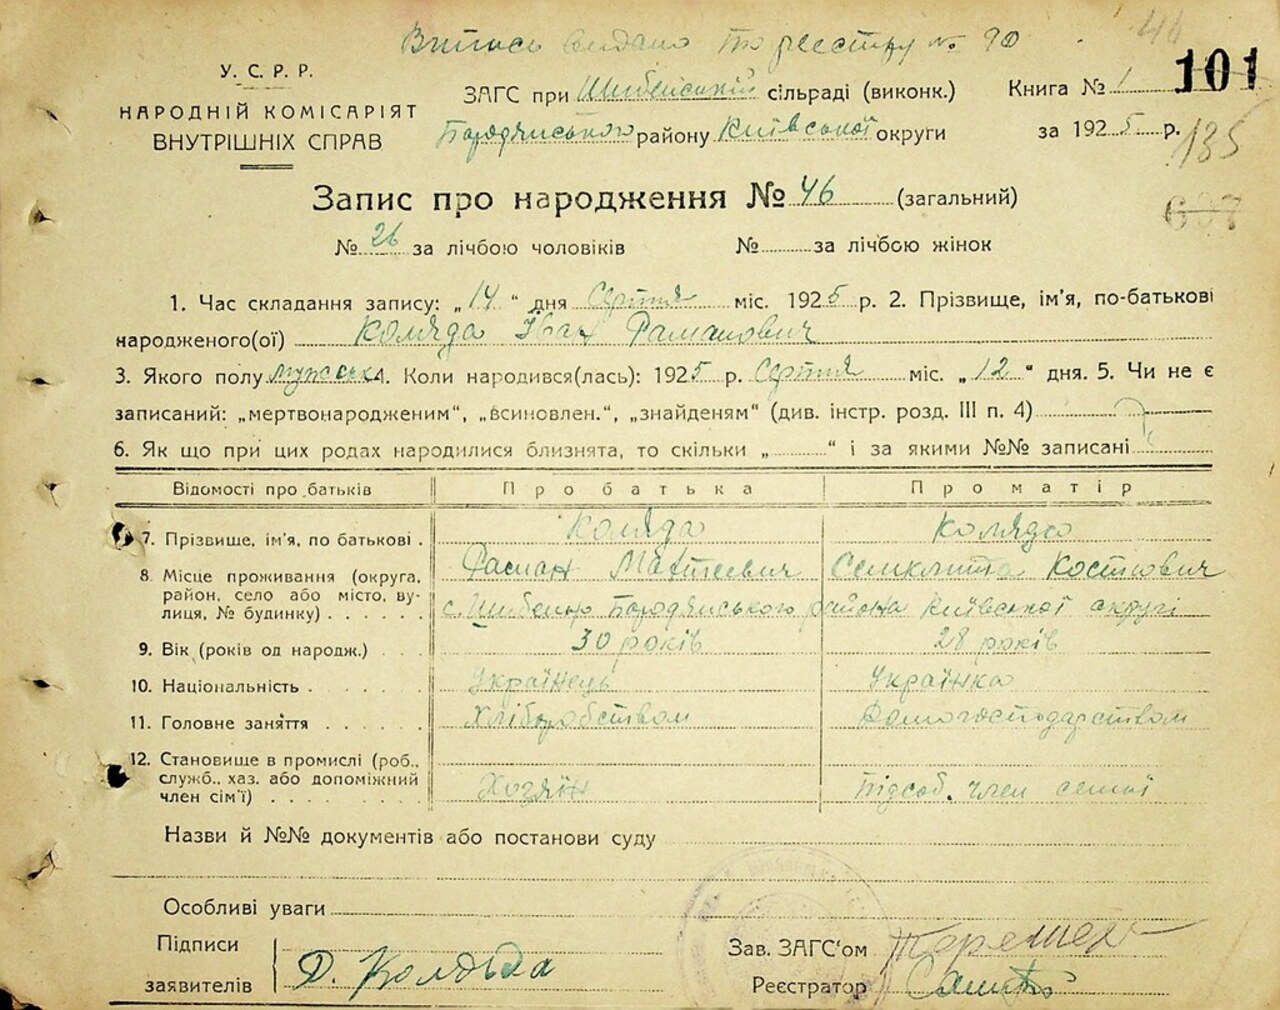 Витись видано по реєстру № 90
44
У. С. Р. Р.
НАРОДНІЙ КОМІСАРІЯТ
ВНУТРІШНІХ СПРАВ
ЗАГС при Шибенській сільраді (виконк.)
Бородянського району Київської округи
Книга № 1
101
за 1925 р.
135
607
Запис про народження № 46 (загальний)
№ 26 за лічбою чоловіків № за лічбою жінок
1. Час складання запису: „14“ дня Серпня міс. 1925 р. 2. Прізвище, ім'я, по-батькові
народженого(ої) Коляда Іван Раманович
3. Якого полу мужська 4. Коли народився(лась): 1925 р. Серпня міс. „12“ дня. 5. Чи не є
записаний: „мертвонародженим“, „всиновлен.“, „знайденям“ (див. інстр. розд. III п. 4)
6. Як що при цих родах народилися близнята, то скільки „ “ і за якими №№ записані
Відомості про батьків Про батька Про матір
7. Прізвище, ім'я, по батькові . Коляда Раман Матвеевич Коляда Костювич
8. Місце проживання (округа, район, село або місто, вулиця, № будинку) . . . . . . с. Шибеню Бородянського района Київської округі
9. Вік (років од народж.) . . . 30 років 28 років
10. Національність . . . . . . Українець Українка
11. Головне заняття . . . . . Хліборобством Домогосподарством
12. Становище в промислі (роб., служб., хаз. або допоміжний член сім'ї) . . . . . . . . Хозяїн Підсоб. член семиї
Назви й №№ документів або постанови суду
Особливі уваги
Підписи
заявителів
Зав. ЗАГС‘ом
Реєстратор